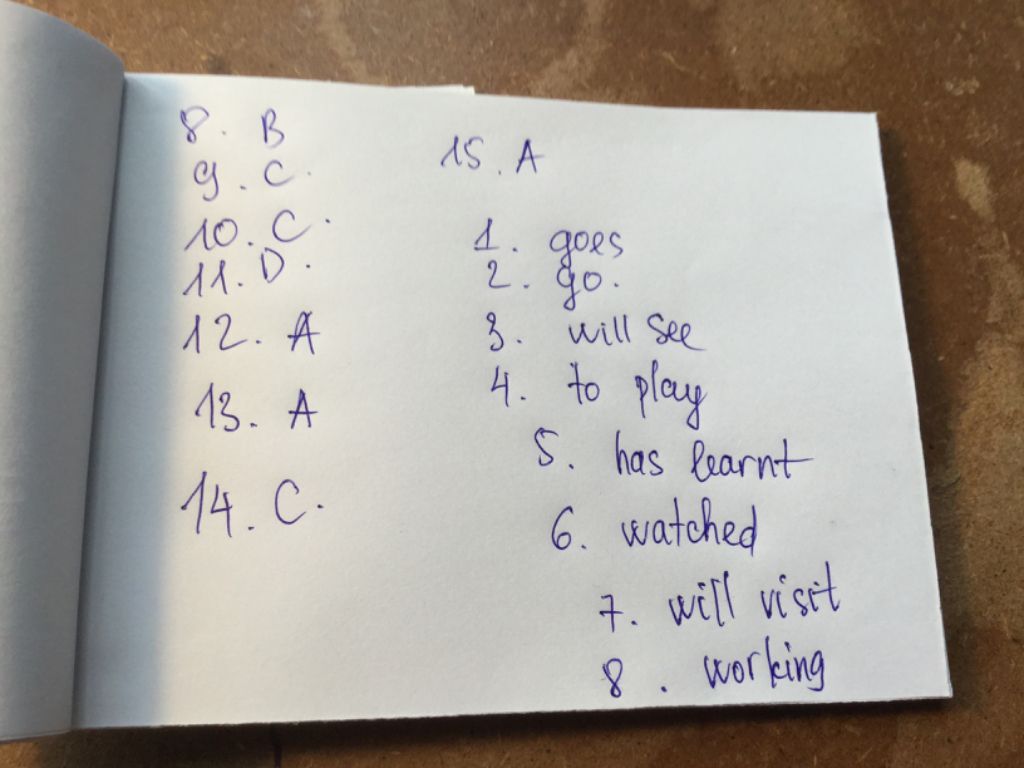 8. B
9. C.
10. C.
11. D.
12. A
13. A
14. C.
15. A
1. goes
2. go.
3. will see
4. to play
5. has learnt
6. watched
7. will visit
8. working